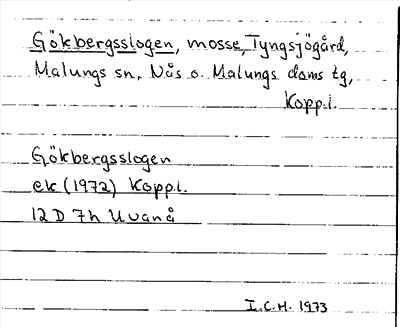 Gökbergsslogen, mosse, Tyngsjögård,
Malungs sn, Nås o. Malungs doms tg,
Kopp.l.
Gökbergsslogen
ek (1972) Kopp.l.
12 D 7h Uvanå
I.C.H. 1973